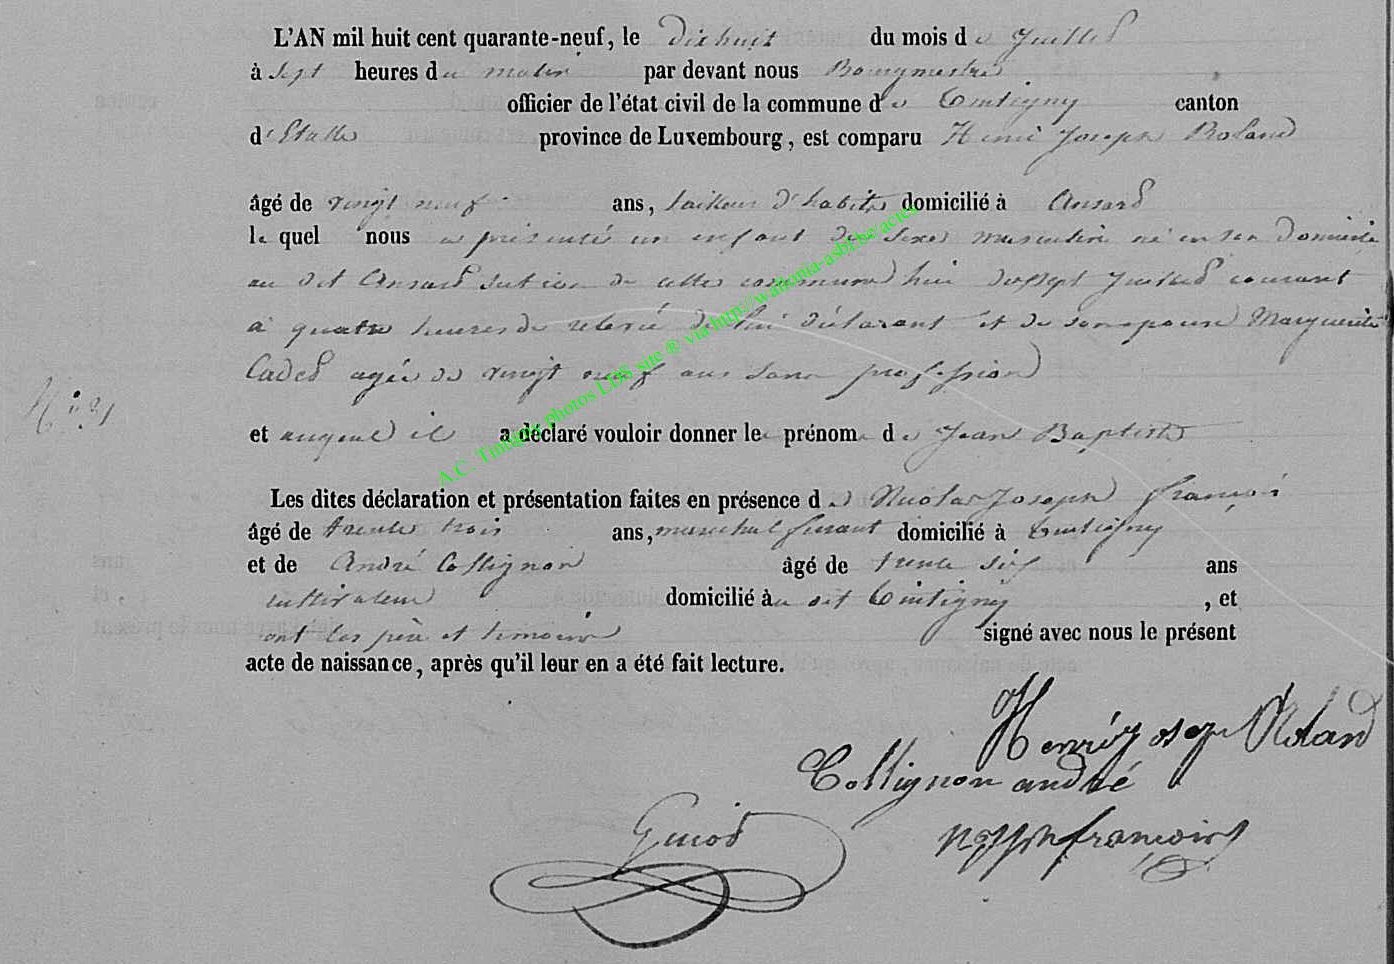 L'AN mil huit cent quarante-neuf, le Dixhuit du mois de Juillet
à sept heures du matin par devant nous Bourgmestre
officier de l'état civil de la commune de Tintigny canton
d'Etalle province de Luxembourg, est comparu Henri Joseph Roland
âgé de vingt neuf ans, tailleur d'habits domicilié à Ansard
le quel nous a présenté un enfant du sexe masculin né en son domicile
au dit Ansard section de cette commune hier dixsept Juillet courant
à quatre heures de relevé de lui déclarant et de son epouse Marguerite
Cadet agée de vingt neuf ans sans profession
N° 21
et auquel il a déclaré vouloir donner le prénom de Jean Baptiste
Les dites déclaration et présentation faites en présence de Nicolas Joseph françois
âgé de trente trois ans, marechal ferrant domicilié à Tintigny
et de André Collignon âgé de trente six ans
cultivateur domicilié au dit Tintigny, et
ont les père et temoins signé avec nous le présent
acte de naissance, après qu'il leur en a été fait lecture.
Henri Roland
Collignon andré
Guiod
françois
A.C. Tintigny photos LDS site ® via http://wallonia-asbl.be/actes